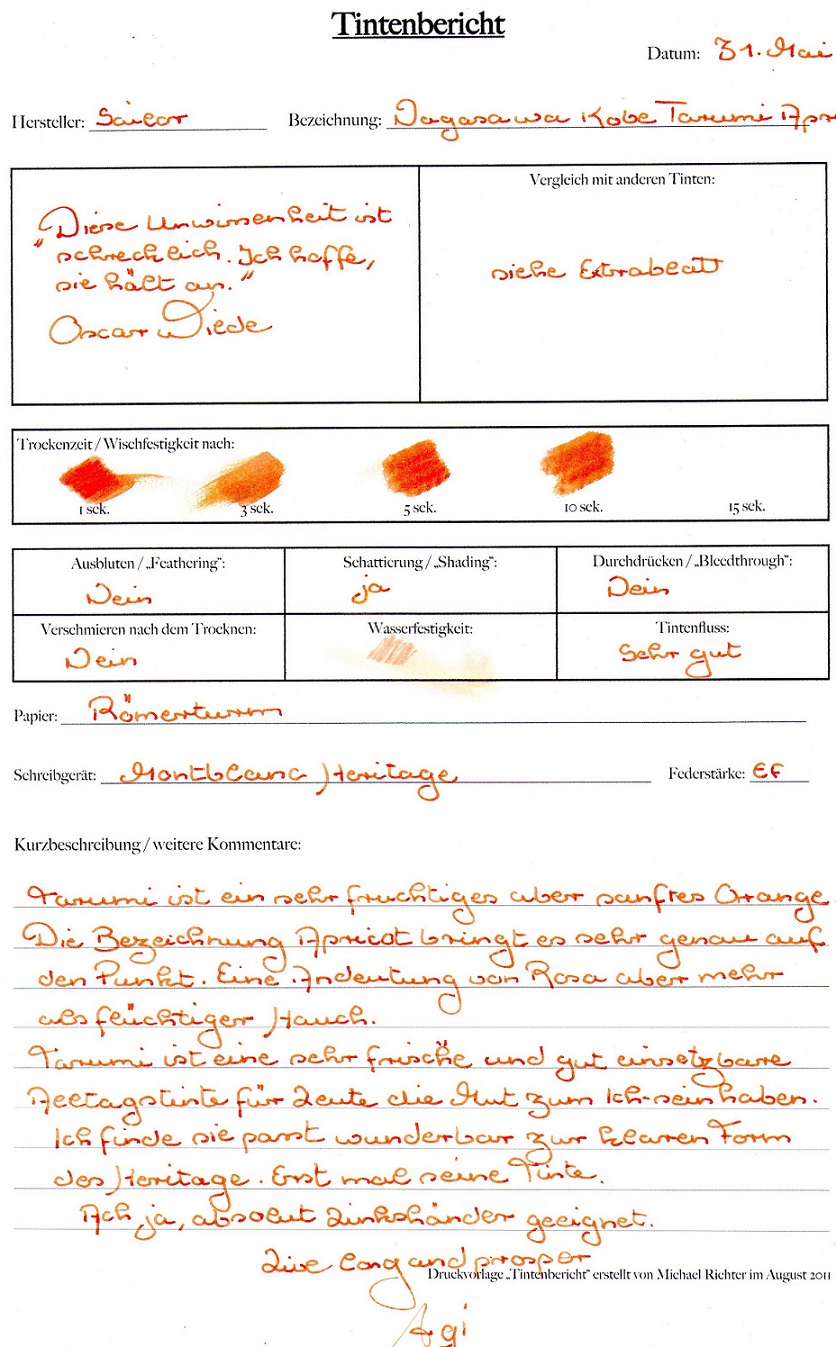 Tintenbericht
Datum: 31. Mai
Hersteller: Sailor Bezeichnung: Nagasawa Kobe Tarumi Apri
"Diese Unwissenheit ist
schrecklich. Ich hoffe,
sie hält an."
Oscar Wilde
Vergleich mit anderen Tinten:
siehe Extrablatt
Trockenzeit / Wischfestigkeit nach:
1 sek. 3 sek. 5 sek. 10 sek. 15 sek.
Ausbluten / „Feathering": Schattierung / „Shading": Durchdrücken / „Bleedthrough":
Nein ja Nein
Verschmieren nach dem Trocknen: Wasserfestigkeit: Tintenfluss:
Nein Sehr gut
Papier: Römerturm
Schreibgerät: Montblanc Heritage Federstärke: EF
Kurzbeschreibung / weitere Kommentare:
Tarumi ist ein sehr fruchtiges aber sanftes Orange
Die Bezeichnung Apricot bringt es sehr genau auf
den Punkt. Eine Andeutung von Rosa aber mehr
als flüchtiger Hauch.
Tarumi ist eine sehr frische und gut einsetzbare
Alltagstinte für Leute die Mut zum Ich-sein haben.
Ich finde sie passt wunderbar zur klaren Form
des Heritage. Erst mal seine Tinte.
Ach ja, absolut Linkshänder geeignet.
Live long and prosper
Druckvorlage „Tintenbericht" erstellt von Michael Richter im August 2011
Agi